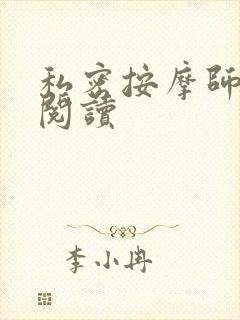 私密按摩師
閱讀
李小冉